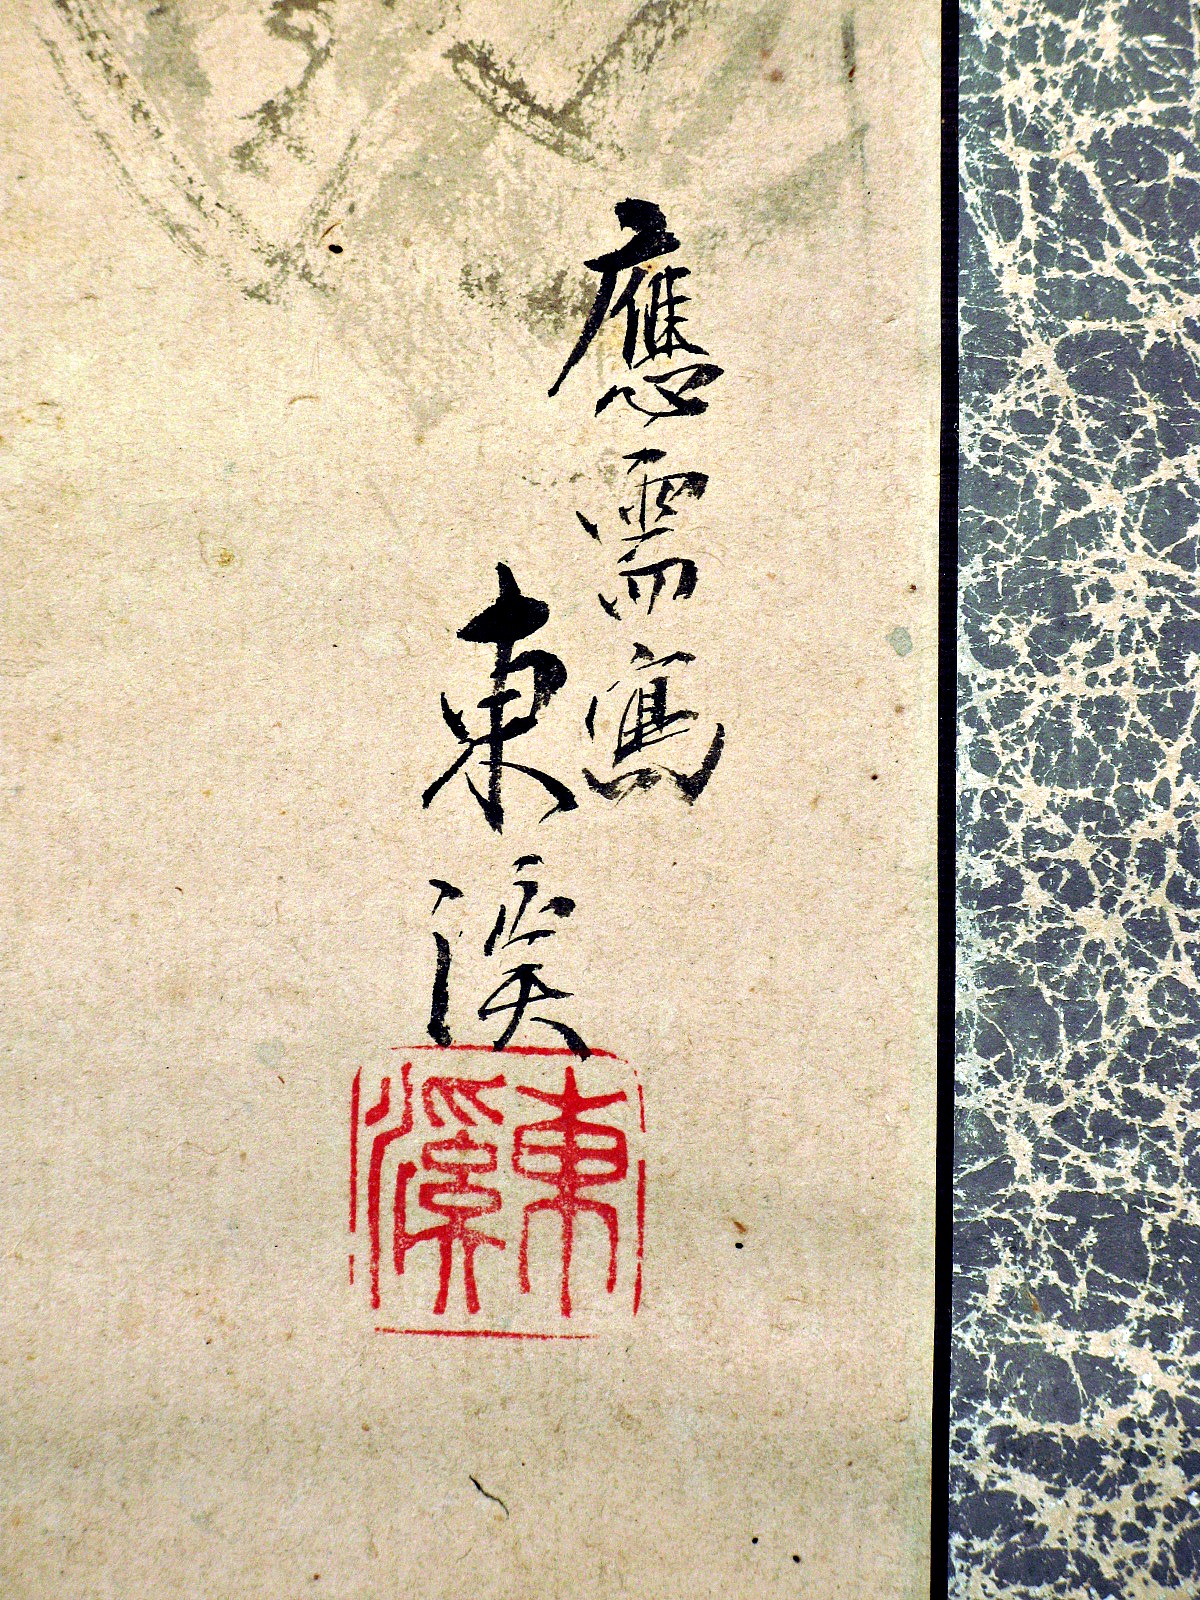 應需寫
東溪
東溪